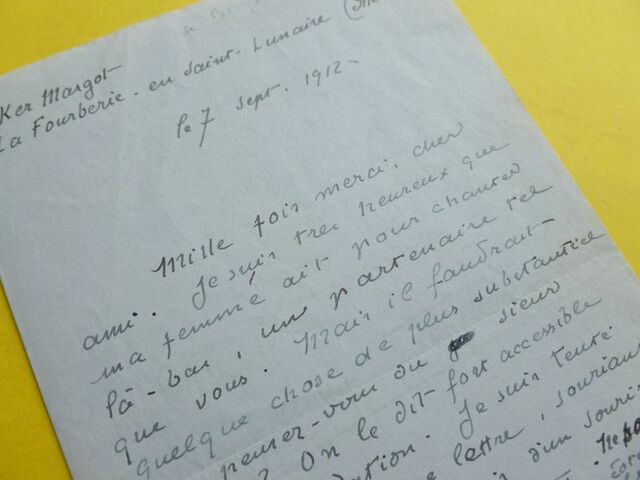 Ker Margot
La Fourberie. en Saint-Lunaire
le 7 sept. 1912-
Mille fois merci, cher
ami. Je suis très heureux que
ma femme ait pour chanter
là-bas, un partenaire tel
que vous. Mais il faudrait-
quelque chose de plus substantiel
pensez-vous du sieur
? On le dit fort accessible
. Je suis tenté
lettre, souriant
d'un souri